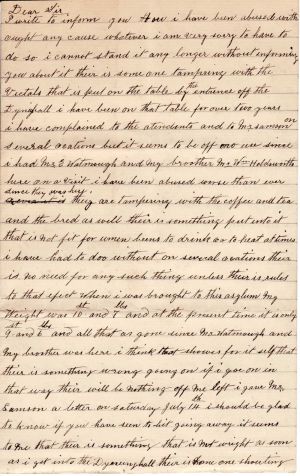 Dear Sir
I write to inform you How i have been abused with
ought any cause whatever i am very sorry to have to
do so i cannot stand it any longer without informing
you about it their is some one tampering with the
Victals that is put on the table by the entience off the
Dyinghall i have been on that table for over two years
i have complained to the atendents and to Mr Samson on
several ocations but it seems to be off no use since
i had Mr E Watmough and my broother Mr Wm Holdsworth
here on a visit i have been abused worse than ever
since they was here.
they are tampering with the coffee and tea
and the bred as well their is something put into it
that is not fit for umen bens to drink or to heat at times
i have had to doo without on several acations their
is no need for any such thing unless their is rules
to that efect when i was brought to this asylum my
Weight was 10 st and 7 lbs and at the present time it is only
9 st and 6 lbs and all that as gone since Mr Watmough and
My brother was here i think that showes for it self that
their is something wrong going on if i goe on in
that way their will be nothing off me left i gave Mr
Samson a letter on saturday July 14th i should be glad
to know if you have seen to hit going away it sums
to me that their is something that is not wright as soon
as i get into the Dyeinghall their is some one shouting